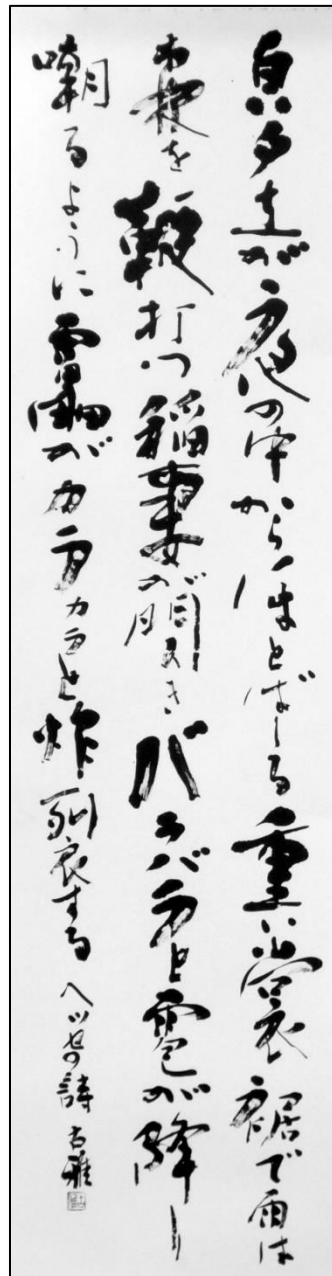 臭夕立が夜の中からほとばしる重い裳裾で雨は
木樹を鞭打つ稲妻が閃きバラバラと雹が降り
嘲るように雷鳴がカラカラと炸裂する ヘッセの詩